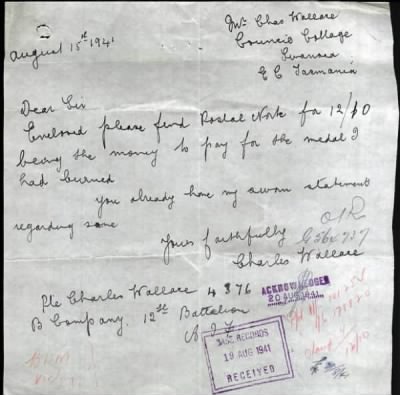 Mr Chas Wallace
Council Cottage
Swansea
E C Tasmania
August 15th 1941
Dear Sir
Enclosed please find Postal Note for 12/10
being the money to pay for the medal I
had burned
you already have my sworn statement
regarding same
Yours faithfully
Charles Wallace
Pte Charles Wallace 4876
B Company. 12th Battalion
A I F
ACKNOWLEDGED
20 AUG 1941
BASE RECORDS
19 AUG 1941
RECEIVED